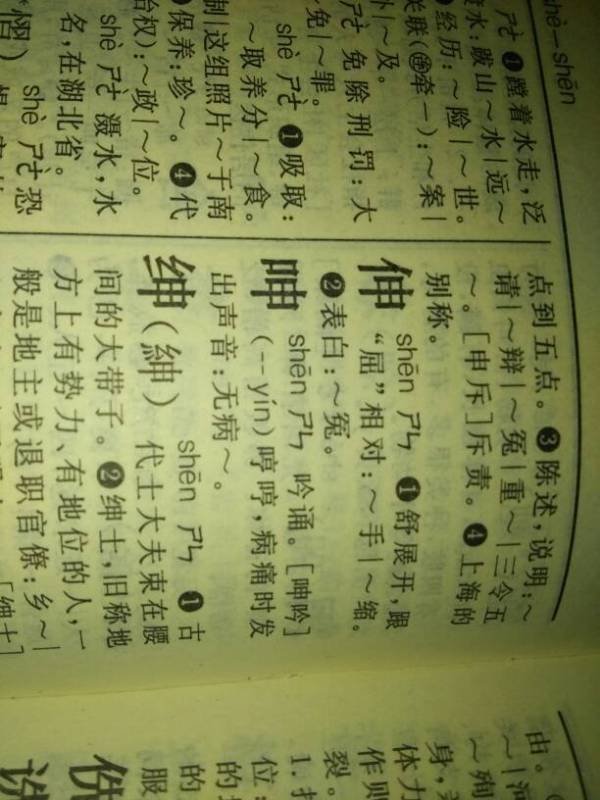 shè—shēn
ㄕㄜˋ ❶蹚着水走,泛
水:跋山~水|远~
经历:~险|~世。
关联(牵一):~案|
外|~及。
ㄕㄜˋ 免除刑罚:大
~免|~罪。
shè ㄕㄜˋ ❶吸取:
~取养分|~食。
制|这组照片~于南
保养:珍~。❹代
治权):~政|~位。
shè ㄕㄜˋ 滠水,水
名,在湖北省。
shè ㄕㄜˋ 恐
点到五点。❸陈述,说明:~
请|~辩|~冤|重~|三令五
~。[申斥]斥责。❹上海的
别称。
伸 shēn ㄕㄣ ❶舒展开,跟
“屈”相对:~手|~缩。
❷表白:~冤。
呻 shēn ㄕㄣ 吟诵。[呻吟]
(--yín)哼哼,病痛时发
出声音:无病~。
绅(紳) shēn ㄕㄣ ❶古
代士大夫束在腰
间的大带子。❷绅士,旧称地
方上有势力、有地位的人,一
般是地主或退职官僚:乡~|
[绅士]
由。
~殉
身,
体力
作则
裂。
1.
位:
的
的
服
侁
诜